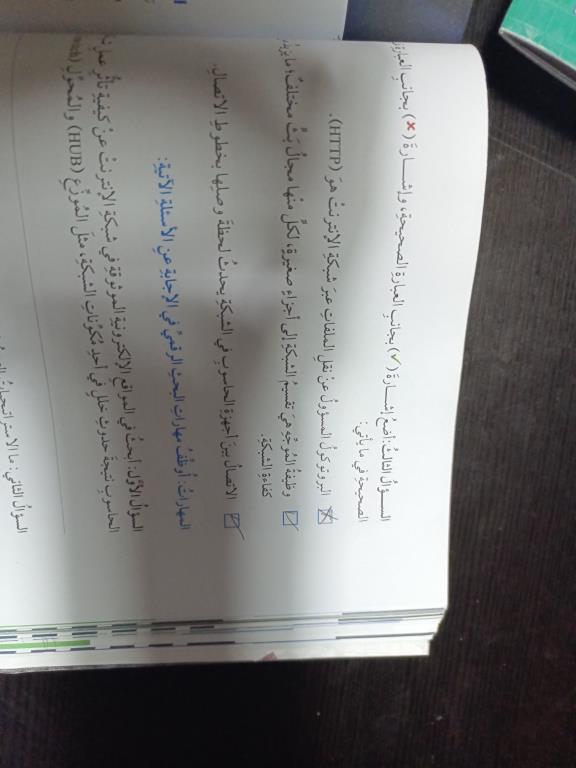 السؤالُ الثالثُ: أضعُ إشارةَ (✓) بجانبِ العبارةِ الصحيحةِ، وإشارةَ (✗) بجانبِ العبارةِ
الصحيحةِ في ما يأتي:
البروتوكولُ المسؤولُ عنْ نقلِ الملفاتِ عبرَ شبكةِ الإنترنتْ هوَ (HTTP).
وظيفةُ المُوجِّهِ هيَ تقسيمُ الشبكةِ إلى أجزاءٍ صغيرةٍ، لكلٍّ منْها مجالُ بَثٍّ مختلفٌ؛ ما يزيدُ
كفاءةِ الشبكةِ.
الاتصالُ بينَ أجهزةِ الحاسوبِ في الشبكةِ يحدثُ لحظةَ وصلِها بخطوطِ الاتصالِ.
المهاراتُ: أوظّفُ مهاراتِ البحثِ الرقميِّ في الإجابةِ عنِ الأسئلةِ الآتيةِ:
السؤالُ الأوَّلُ: أبحثُ في المواقعِ الإلكترونيةِ الموثوقةِ في شبكةِ الإنترنتْ عنْ كيفيةِ تأثُّرِ عملِ
الحاسوبِ نتيجةَ حدوثِ خللٍ في أحدِ مُكوِّناتِ الشبكةِ، مثلَ المُوزِّعِ (HUB) والمُحوِّلِ
السؤالُ الثاني: ما الاستراتيجياتُ